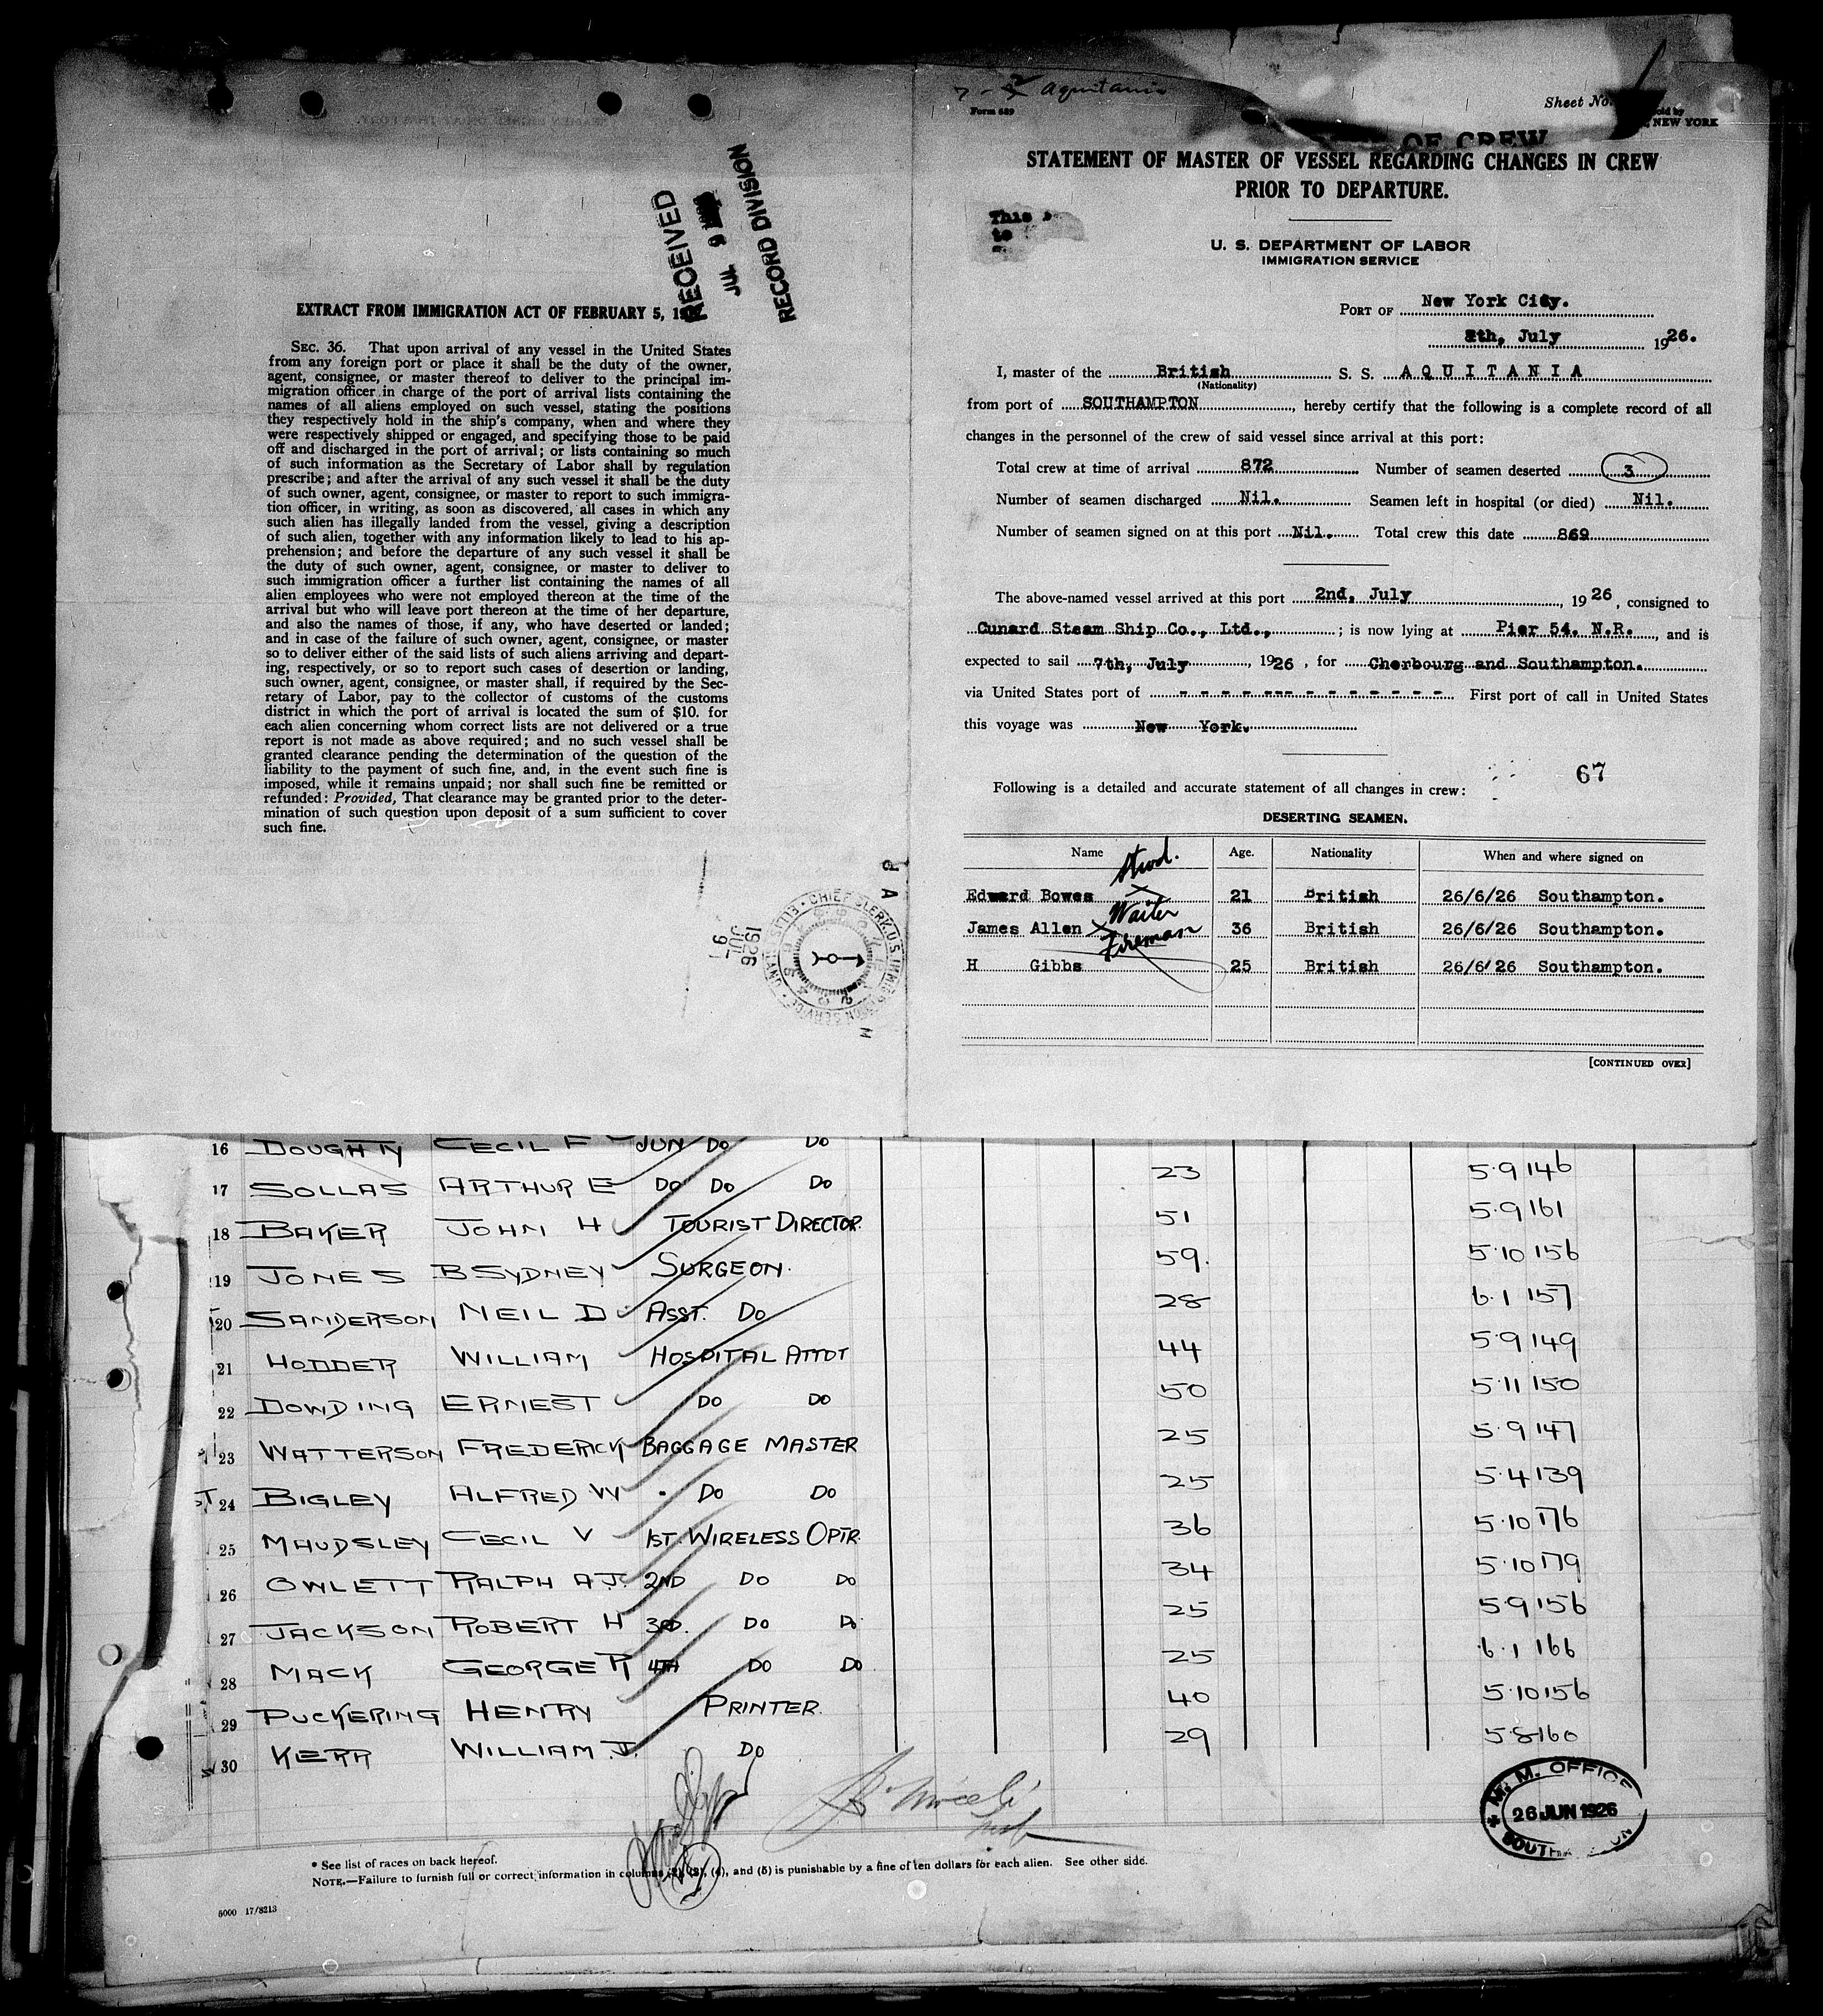 RECEIVED
JUL 9
RECORD DIVISION
EXTRACT FROM IMMIGRATION ACT OF FEBRUARY 5,
SEC. 36. That upon arrival of any vessel in the United States
from any foreign port or place it shall be the duty of the owner,
agent, consignee, or master thereof to deliver to the principal im-
migration officer in charge of the port of arrival lists containing the
names of all aliens employed on such vessel, stating the positions
they respectively hold in the ship's company, when and where they
were respectively shipped or engaged, and specifying those to be paid
off and discharged in the port of arrival; or lists containing so much
of such information as the Secretary of Labor shall by regulation
prescribe; and after the arrival of any such vessel it shall be the duty
of such owner, agent, consignee, or master to report to such immigra-
tion officer, in writing, as soon as discovered, all cases in which any
such alien has illegally landed from the vessel, giving a description
of such alien, together with any information likely to lead to his ap-
prehension; and before the departure of any such vessel it shall be
the duty of such owner, agent, consignee, or master to deliver to
such immigration officer a further list containing the names of all
alien employees who were not employed thereon at the time of the
arrival but who will leave port thereon at the time of her departure,
and also the names of those, if any, who have deserted or landed;
and in case of the failure of such owner, agent, consignee, or master
so to deliver either of the said lists of such aliens arriving and depart-
ing, respectively, or so to report such cases of desertion or landing,
such owner, agent, consignee, or master shall, if required by the Sec-
retary of Labor, pay to the collector of customs of the customs
district in which the port of arrival is located the sum of $10. for
each alien concerning whom correct lists are not delivered or a true
report is not made as above required; and no such vessel shall be
granted clearance pending the determination of the question of the
liability to the payment of such fine, and, in the event such fine is
imposed, while it remains unpaid; nor shall such fine be remitted or
refunded: Provided, That clearance may be granted prior to the deter-
mination of such question upon deposit of a sum sufficient to cover
such fine.
1926 JUL 9
CHIEF CLERK U.S. IMMIGRATION SERVICE
Aquitania
Form 689
Sheet No.
NEW YORK
OF CREW
STATEMENT OF MASTER OF VESSEL REGARDING CHANGES IN CREW
PRIOR TO DEPARTURE.
This
to
U. S. DEPARTMENT OF LABOR
IMMIGRATION SERVICE
PORT OF New York City.
8th, July 1926.
I, master of the British S. S. AQUITANIA
(Nationality)
from port of SOUTHAMPTON, hereby certify that the following is a complete record of all
changes in the personnel of the crew of said vessel since arrival at this port:
Total crew at time of arrival 872 Number of seamen deserted 3
Number of seamen discharged Nil. Seamen left in hospital (or died) Nil.
Number of seamen signed on at this port Nil. Total crew this date 869
The above-named vessel arrived at this port 2nd, July, 1926, consigned to
Cunard Steam Ship Co., Ltd.,; is now lying at Pier 54. N.R., and is
expected to sail 7th, July, 1926, for Cherbourg and Southampton.
via United States port of - - - - - - - - - - - - - First port of call in United States
this voyage was New York.
67
Following is a detailed and accurate statement of all changes in crew:
DESERTING SEAMEN.
Name Age. Nationality When and where signed on
Stwd.
Edward Bowes 21 British 26/6/26 Southampton.
Waiter
James Allen 36 British 26/6/26 Southampton.
Fireman
H Gibbs 25 British 26/6/26 Southampton.
[CONTINUED OVER]
16 DOUGHTY CECIL F JUN DO DO
17 SOLLAS ARTHUR E DO DO DO 23 5·9 146
18 BAKER JOHN H TOURIST DIRECTOR. 51 5·9 161
19 JONES B SYDNEY SURGEON. 59. 5·10 156
20 SANDERSON NEIL D ASST. DO 28 6·1 157
21 HODDER WILLIAM HOSPITAL ATTDT 44 5·9 149
22 DOWDING ERNEST DO DO 50 5·11 150
23 WATTERSON FREDERICK BAGGAGE MASTER 25 5·9 147
24 BIGLEY ALFRED W DO DO 25 5·4 139
25 MAUDSLEY CECIL V 1ST. WIRELESS OPTR. 36 5·10 176
26 OWLETT RALPH A.J. 2ND DO DO 34 5·10 179
27 JACKSON ROBERT H 3RD. DO DO 25 5·9 156
28 MACK GEORGE R 4TH DO DO 25 6·1 166
29 PUCKERING HENRY PRINTER. 40 5·10 156
30 KERR WILLIAM J. DO 29 5·8 160
M. M. OFFICE
26 JUN 1926
* See list of races on back hereof.
NOTE.—Failure to furnish full or correct information in columns (2), (3), (4), and (5) is punishable by a fine of ten dollars for each alien. See other side.
5000 17/8213